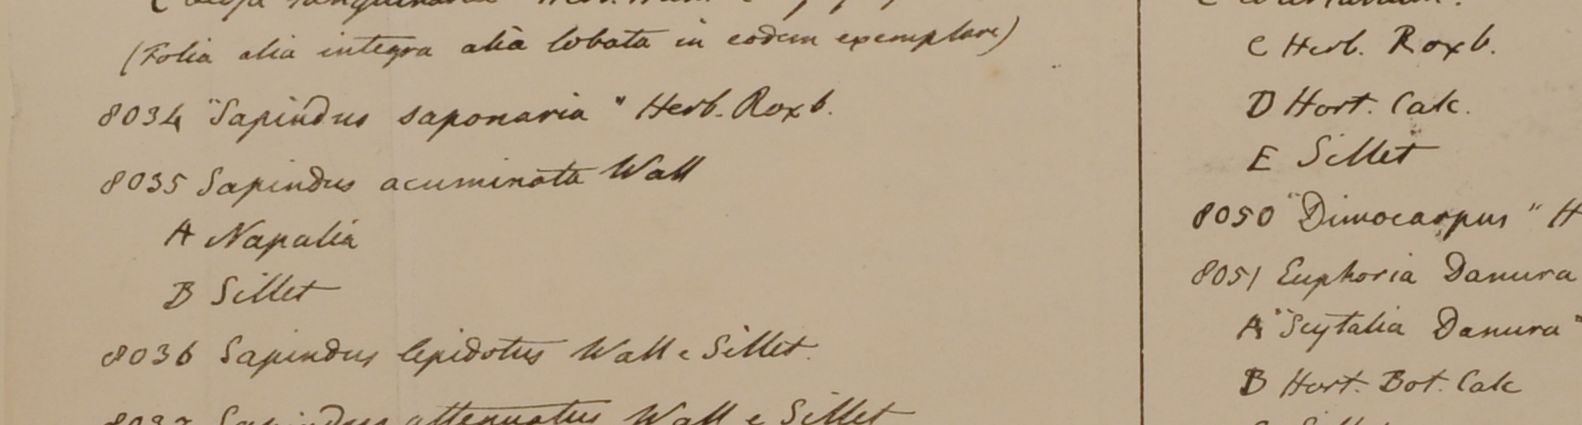 (Folia alia integra alia lobata in eodem exemplare)
8034 "Sapindus saponaria" Herb. Roxb.
8035 Sapindus acuminata Wall
A Napalia
B Sillet
8036 Sapindus lepidotus Wall e Sillet.
8037 Sapindus attenuatus Wall e Sillet
C Herb. Roxb.
D Hort. Calc.
E Sillet
8050 "Dimocarpus" H
8051 Euphoria Danura
A "Scytalia Danura"
B Hort. Bot. Calc